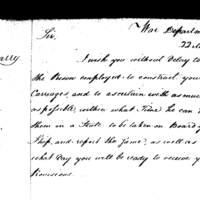 War Departm
Sir,
22d
arry
I wish you without Delay to
the Person employed to construct your
Carriages, and to ascertain with as much
as possible, within what Time he can
them in a State to be taken on Board
Ship, and report the same, as well as
what Day you will be ready to receive y
Provisions.